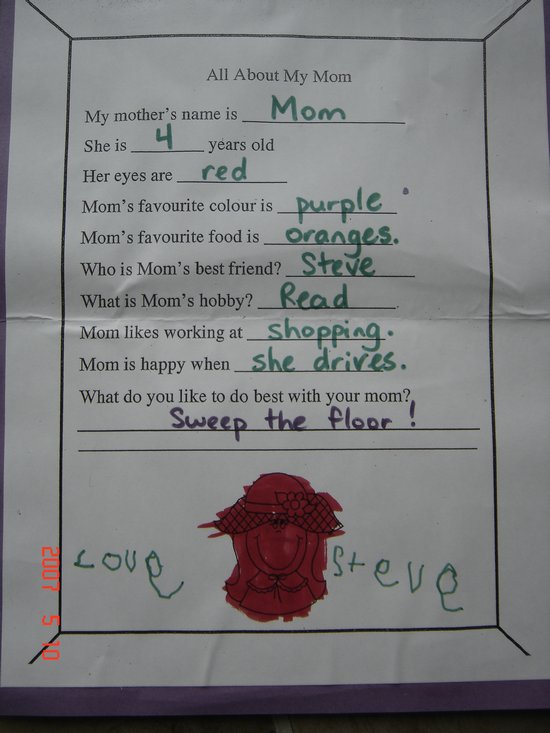 All About My Mom
My mother's name is Mom
She is 4 years old
Her eyes are red
Mom's favourite colour is purple
Mom's favourite food is oranges.
Who is Mom's best friend? Steve
What is Mom's hobby? Read
Mom likes working at shopping.
Mom is happy when she drives.
What do you like to do best with your mom?
Sweep the floor!
Love Steve
2007 5 10